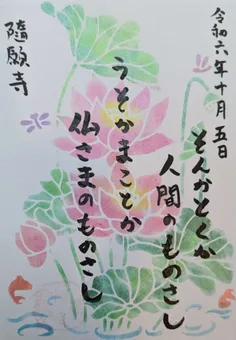 令和六年十月五日
そんかとくか
人間のものさし
うそかまことか
仏さまのものさし
隨願寺